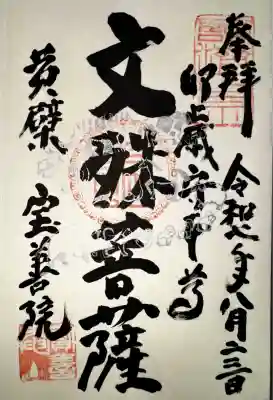 奉拝 令和年八月二三日
卯歳守本尊
文殊菩薩
黄檗 宝善院